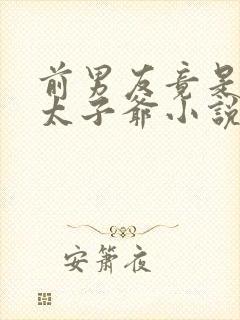 前男友竟是
太子爷小说
安箫夜